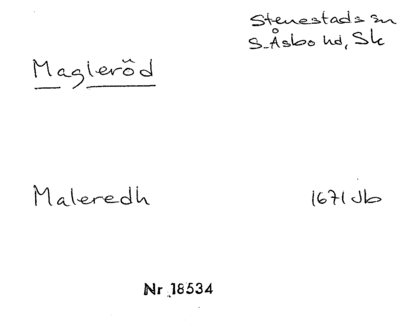 Stenestads sn
S. Åsbo hd, Sk
Magleröd
Maleredh 1671 Jb
Nr 18534